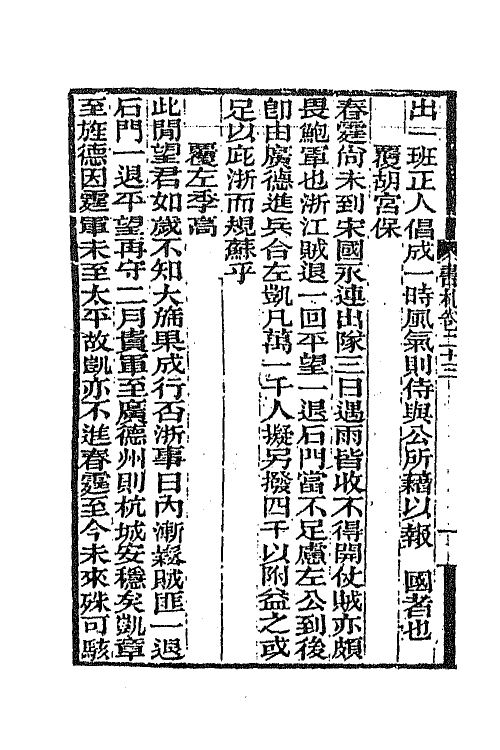 出一班正人倡成一時風氣則侍與公所藉以報　國者也
覆胡宮保
春霆尚未到宋國永連出隊三日遇雨皆收不得開仗賊亦頗
畏鮑軍也浙江賊退一回平望一退石門當不足慮左公到後
卽由廣德進兵合左凱凡萬一千人擬另撥四千以附益之或
足以庇浙而規蘇乎
覆左季高
此間望君如歲不知大旆果成行否浙事日內漸鬆賊匪一退
石門一退平望再守二月貴軍至廣德州則杭城安穩矣凱章
至旌德因霆軍未至太平故凱亦不進春霆至今未來殊可駭